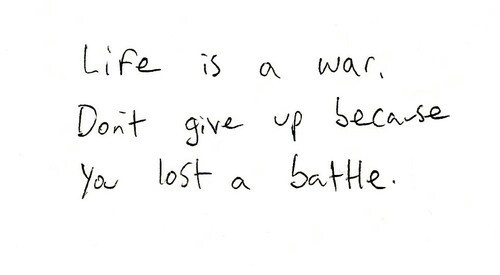 Life is a war.
Don't give up because
you lost a battle.